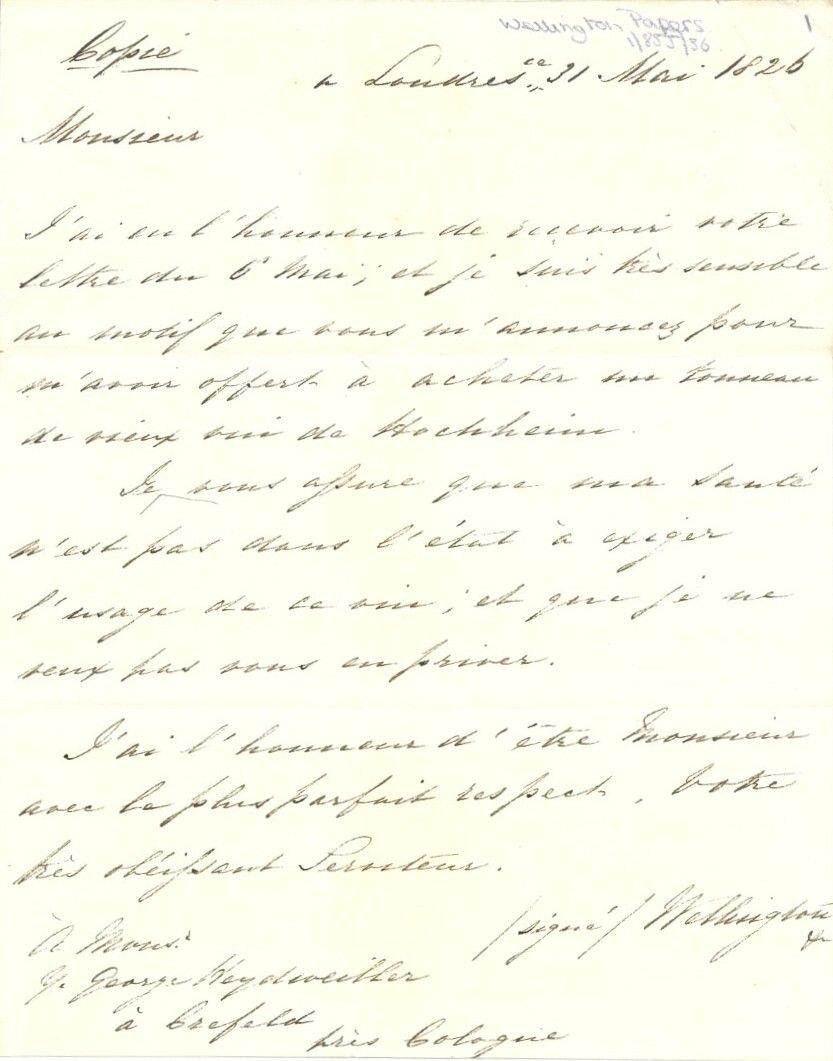 Wellington Papers 1
1/855/36
Copié
à Londres, ce 31 Mai 1826
Monsieur
J'ai eu l'honneur de recevoir votre
lettre du 6 Mai; et je suis très sensible
au motif que vous m'annoncez pour
m'avoir offert à acheter un tonneau
de vieux vin de Hochheim.
Je vous assure que ma santé
n'est pas dans l'état à exiger
l'usage de ce vin; et que je ne
veux pas vous en priver.
J'ai l'honneur d'être Monsieur
avec le plus parfait respect, Votre
très obéissant Serviteur.
/signé/ Wellington
À Monsr.
George Heydweiller
à Crefeld
près Cologne